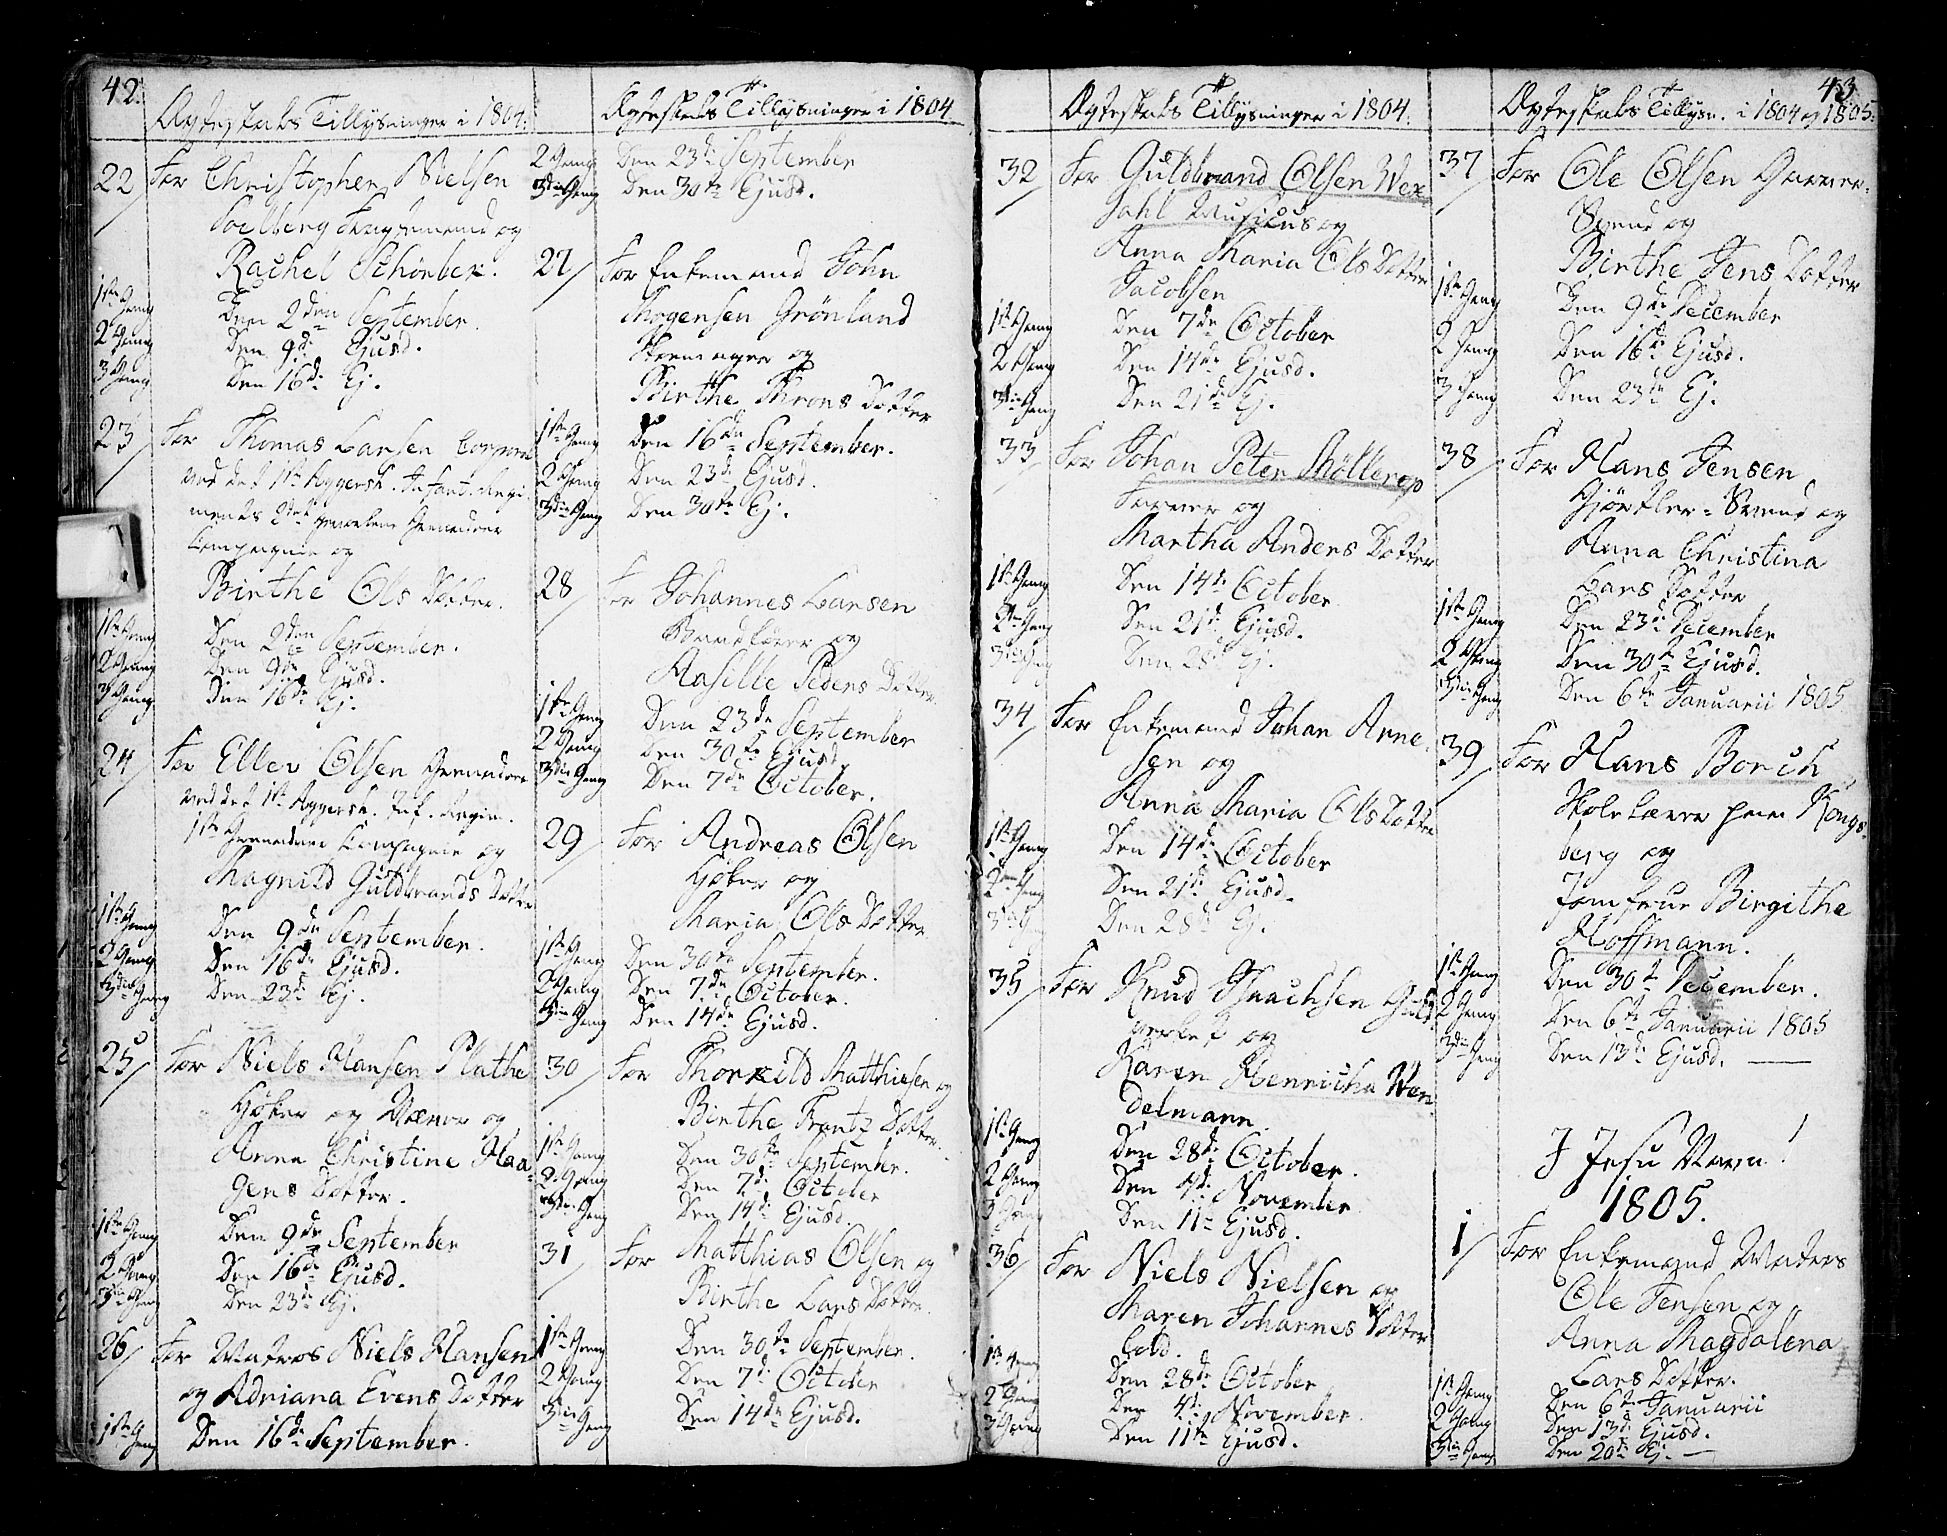 42.
Ægteskabs Tillysninger i 1804.
22 For Christopher Nielsen
Soelberg Fragtemand og
Rachel Schönbek.
1ste Gang Den 2den September.
2 Gang Den 9de Ejusd.
3 Gang Den 16de Ej.
23 For Thomas Larsen Corporal
ved det 1ste Aggersh. Infant. Regi-
ments 2det Grenadeer
Compagnie og
Birthe Ols Dotter.
1ste Gang Den 2den September.
2 Gang Den 9de Ejusd.
3 Gang Den 16de Ej.
24 For Ellev Olsen Grenadeer
ved det 1ste Aggersh. Inf. Regim.
1ste Grenadeer Compagnie og
Magnild Guldbrands Dotter
1ste Gang Den 9de September.
2 Gang Den 16de Ejusd.
3die Gang Den 23de Ej.
25 For Niels Hansen Plathe
Høker og Væver og
Anna Christine Haa-
gens Dotter.
1ste Gang Den 9de September
2 Gang Den 16de Ejusd.
3die Gang Den 23de Ej.
26 For Matros Niels Hansen
og Adriana Evens Dotter
1ste Gang Den 16de September.
Ægteskabs Tillysninger i 1804.
2 Gang Den 23de September
3die Gang Den 30te Ejusd.
27 For Enkemand John
Mogensen Grönland
Skomager og
Birthe Throns Dotter
1ste Gang Den 16de September.
2 Gang Den 23de Ejusd.
3die Gang Den 30te Ej.
28 For Johannes Larsen
og
Aasille Peders Dotter
1ste Gang Den 23de September
2 Gang Den 30te Ejusd.
3die Gang Den 7de October.
29 For Andreas Olsen
Høker og
Maria Ols Dotter
1ste Gang Den 30te September.
2 Gang Den 7de October.
3die Gang Den 14de Ejusd.
30 For Thorkild Matthiesen og
Birthe Frantz Dotter.
1ste Gang Den 30te September.
2 Gang Den 7de October
3die Gang Den 14de Ejusd.
31 For Matthias Olsen og
Birthe Lars Dotter.
1ste Gang Den 30te September.
2 Gang Den 7de October
3die Gang Den 14de Ejusd.
Ægteskabs Tillysninger i 1804.
32 For Guldbrand Olsen Wex-
sahl Musicus og
Anna Maria Ols Dotter
Jacobsen
1ste Gang Den 7de October
2 Gang Den 14de Ejusd.
3die Gang Den 21de Ej.
33 For Johan Peter Möllerop
Farver og
Martha Anders Dotter
1ste Gang Den 14de October
2 Gang Den 21de Ejusd.
3die Gang Den 28de Ej.
34 For Enkemand Johan Arne-
sen og
Anna Maria Ols Dotter
1ste Gang Den 14de October
2den Gang Den 21de Ejusd.
3die Gang Den 28de Ej.
35 For Knud Isaachsen Guld-
og
Karen Henricha Wen-
delmann.
1ste Gang Den 28de October.
2 Gang Den 4de November
3 Gang Den 11te Ejusd.
36 For Niels Nielsen og
Maren Johannes Dotter
Cold.
1ste Gang Den 28de October
2 Gang Den 4de November.
3 Gang Den 11te Ejusd.
43.
Ægteskabs Tillysn. i 1804 og 1805.
37 For Ole Olsen Garver-
Svend og
Birthe Jens Dotter
1ste Gang Den 9de December
2 Gang Den 16de Ejusd.
3 Gang Den 23de Ej.
38 For Hans Jensen
Gjørtler-Svend og
Anna Christina
Lars Dotter
1ste Gang Den 23de December
2 Gang Den 30te Ejusd.
3die Gang Den 6te Januarii 1805
39 For Hans Borch
Skolelærer paa Kongs-
berg og
Jomfrue Birgithe
Hoffmann.
1ste Gang Den 30te December.
2 Gang Den 6te Januarii 1805
3die Gang Den 13de Ejusd.
I Jesu Navn!
1805.
1 For Enkemand Matros
Ole Jensen og
Anna Magdalena
Lars Dotter.
1ste Gang Den 6te Januarii
2 Gang Den 13de Ejusd.
3die Gang Den 20de Ej.